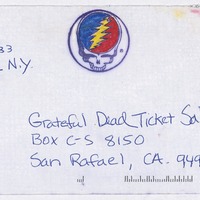 33
N.Y.
Grateful Dead Ticket Sa
Box C-S 8150
San Rafael, CA. 949